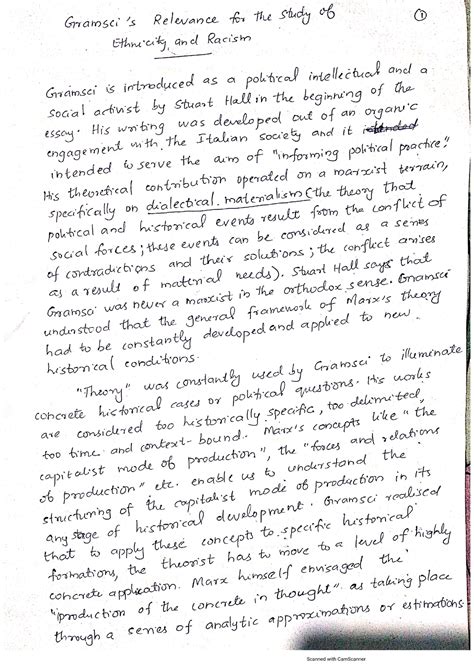 Gramsci's Relevance for the Study of
①
Ethnicity and Racism
Gramsci is introduced as a political intellectual and a
social activist by Stuart Hall in the beginning of the
essay. His writing was developed out of an organic
engagement with the Italian society and it intended
intended to serve the aim of "informing political practice".
His theoretical contribution operated on a marxist terrain,
specifically on dialectical materialism (the theory that
political and historical events result from the conflict of
social forces; these events can be considered as a series
of contradictions and their solutions; the conflict arises
as a result of material needs). Stuart Hall says that
Gramsci was never a marxist in the orthodox sense. Gramsci
understood that the general framework of Marx's theory
had to be constantly developed and applied to new
historical conditions.
"Theory" was constantly used by Gramsci to illuminate
concrete historical cases or political questions. His works
are considered too historically specific, too delimited,
too time and context-bound. Marx's concepts like "the
capitalist mode of production", the "forces and relations
of production" etc. enable us to understand the
structuring of the capitalist mode of production in its
any stage of historical development. Gramsci realised
that to apply these concepts to specific historical
formations, the theorist has to move to a level of highly
concrete application. Marx himself envisaged the
"production of the concrete in thought" as taking place
through a series of analytic approximations or estimations
Scanned with CamScanner